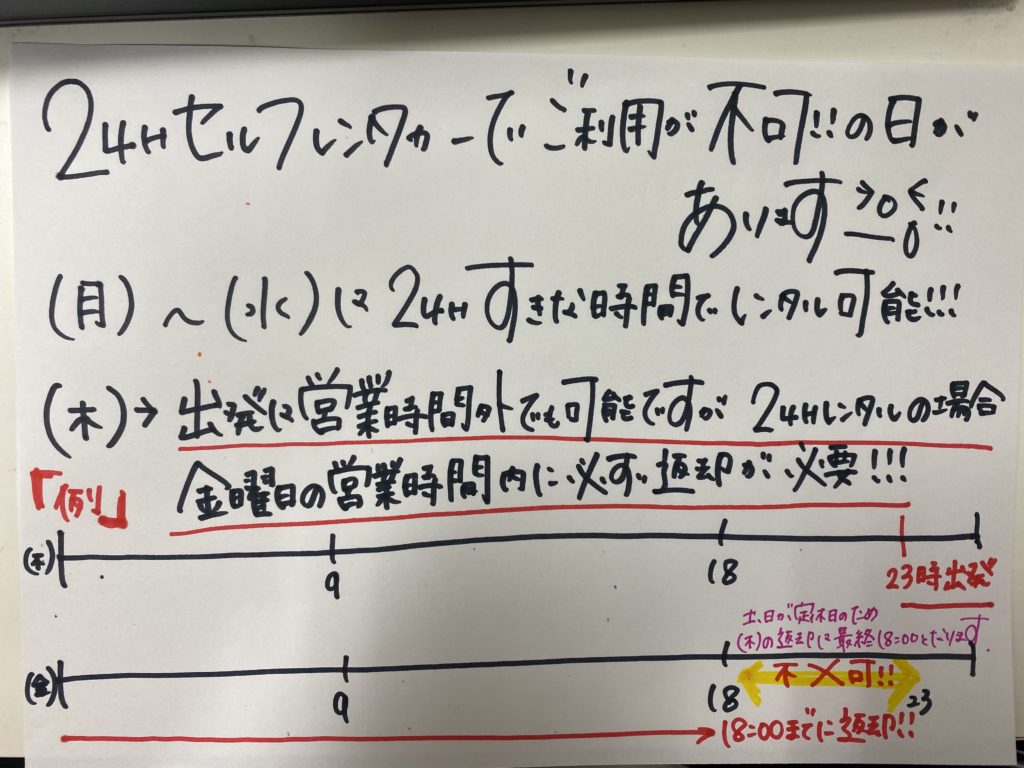 24Hセルフレンタカーでご利用が不可!!の日が
あります!!
(月)～(水)は24Hすきな時間でレンタル可能!!!
(木)→出発は営業時間外でも可能ですが24Hレンタルの場合
金曜日の営業時間内に必ず返却が必要!!!
「例」
(木) 9 18 23時出発
土、日が定休日のため
(木)の返却は最終18:00となります
不可!!
(金) 9 18 23
18:00までに返却!!